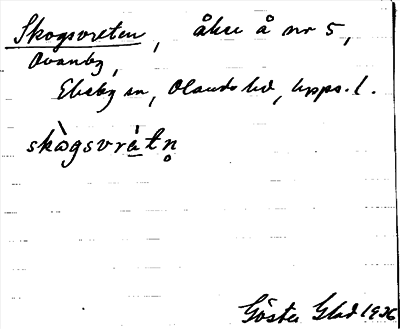 Skogsvreten, åker å nr 5,
Ovanby,
Ekeby sn, Olands hd, Upps. l.
skògsvrètn̥
Gösta Glad 1926